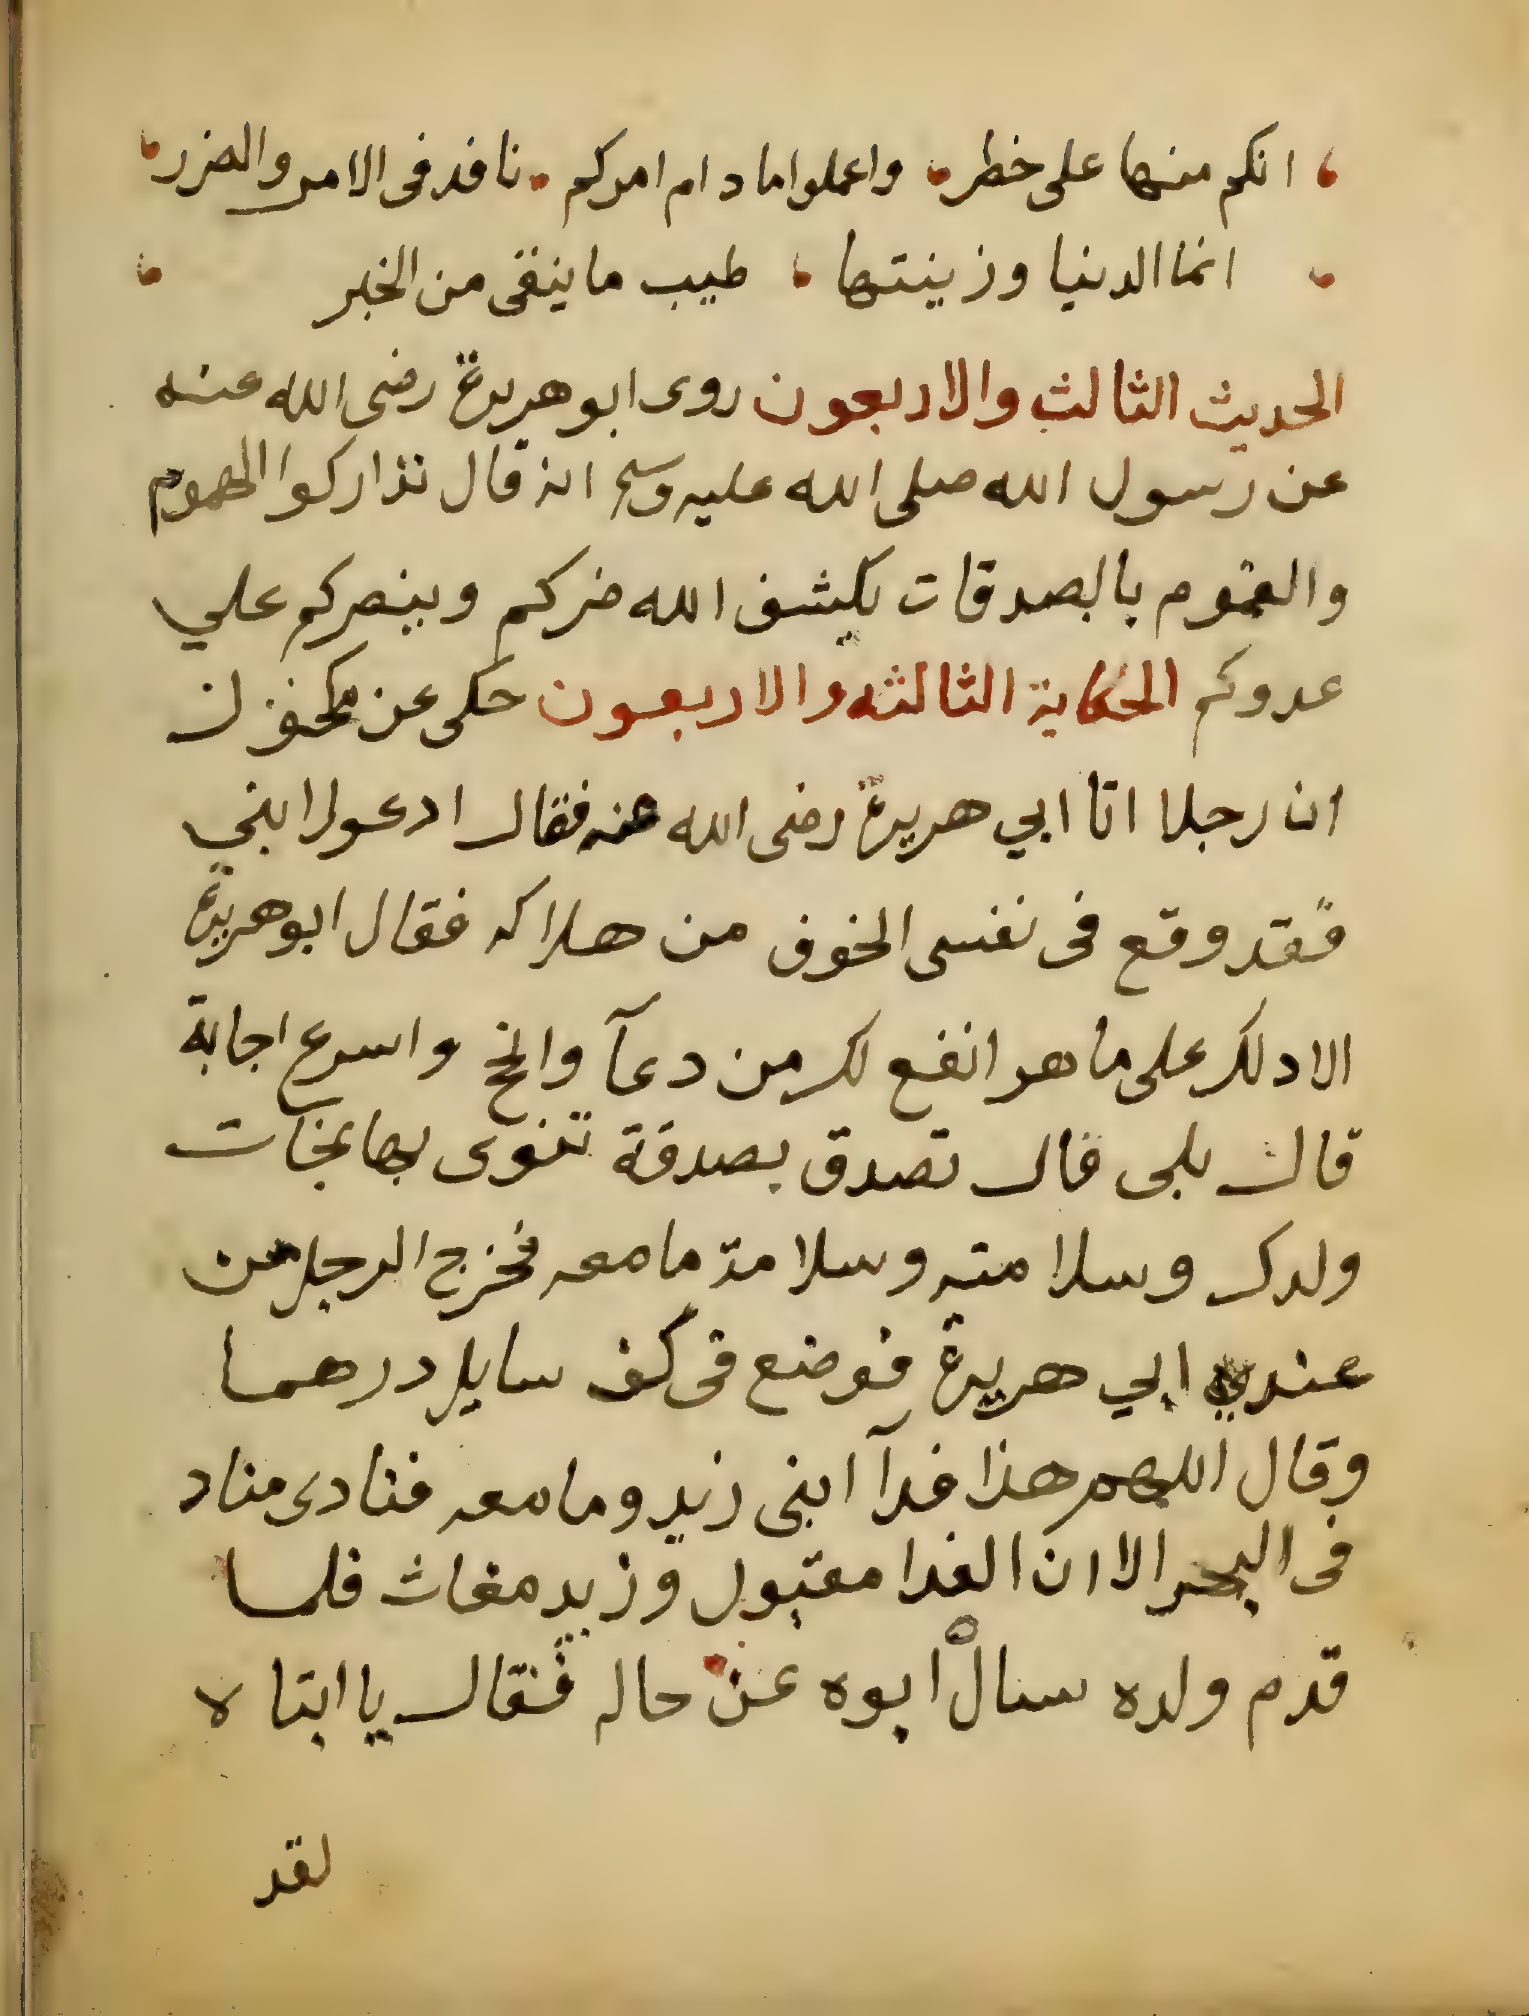 انكم منها على خطر واعملوا ما دام امركم نافد فى الامر والضرر
انما الدنيا وزينتها طيب ما ينقى من الخبر
الحديث الثالث والاربعون روى ابو هريرة رضى الله عنه
عن رسول الله صلى الله عليه وسلم انه قال تذاركوا الهموم
والغموم بالصدقات يكشف الله ضركم وينصركم علي
عدوكم الحكاية الثالثه والاربعون حكى عن
ان رجلا اتا ابي هريرة رضى الله عنه فقال ادعو لابني
فقد وقع فى نفسى الخوف من هلاكه فقال ابو هريرة
الا دلك على ما هو انفع لك من دعآ وانجح واسرع اجابة
قال بلى قال تصدق بصدقة تنوى بها نجات
ولدك وسلامته وسلامة ما معه فخرج الرجل من
عند ابي هريرة فوضع فى كف سايل درهما
وقال اللهم هذا فدآ ابنى زيد وما معه فنادى مناد
فى البحر الا ان الفدا مقبول وزيد مغاث فلما
قدم ولده سال ابوه عن حاله فقال يا ابتاه
لقد